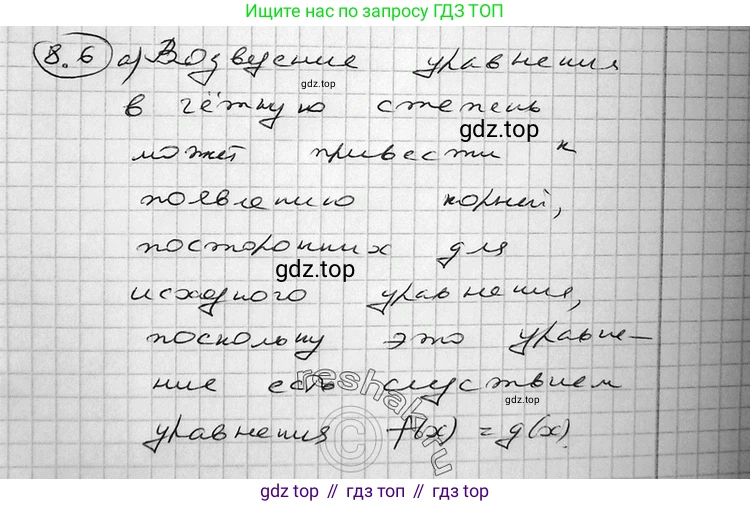 Ищите нас по запросу ГДЗ ТОП
8.6 а) Возведение уравнения
gdz.top
в чётную степень
gdz.top
может привести к
появлению корней,
посторонних для
gdz.top
исходного уравнения,
поскольку это уравне-
ние есть следствием
gdz.top
reshak.ru
©
уравнения f(x) = g(x)
gdz.top // гдз топ // gdz.top